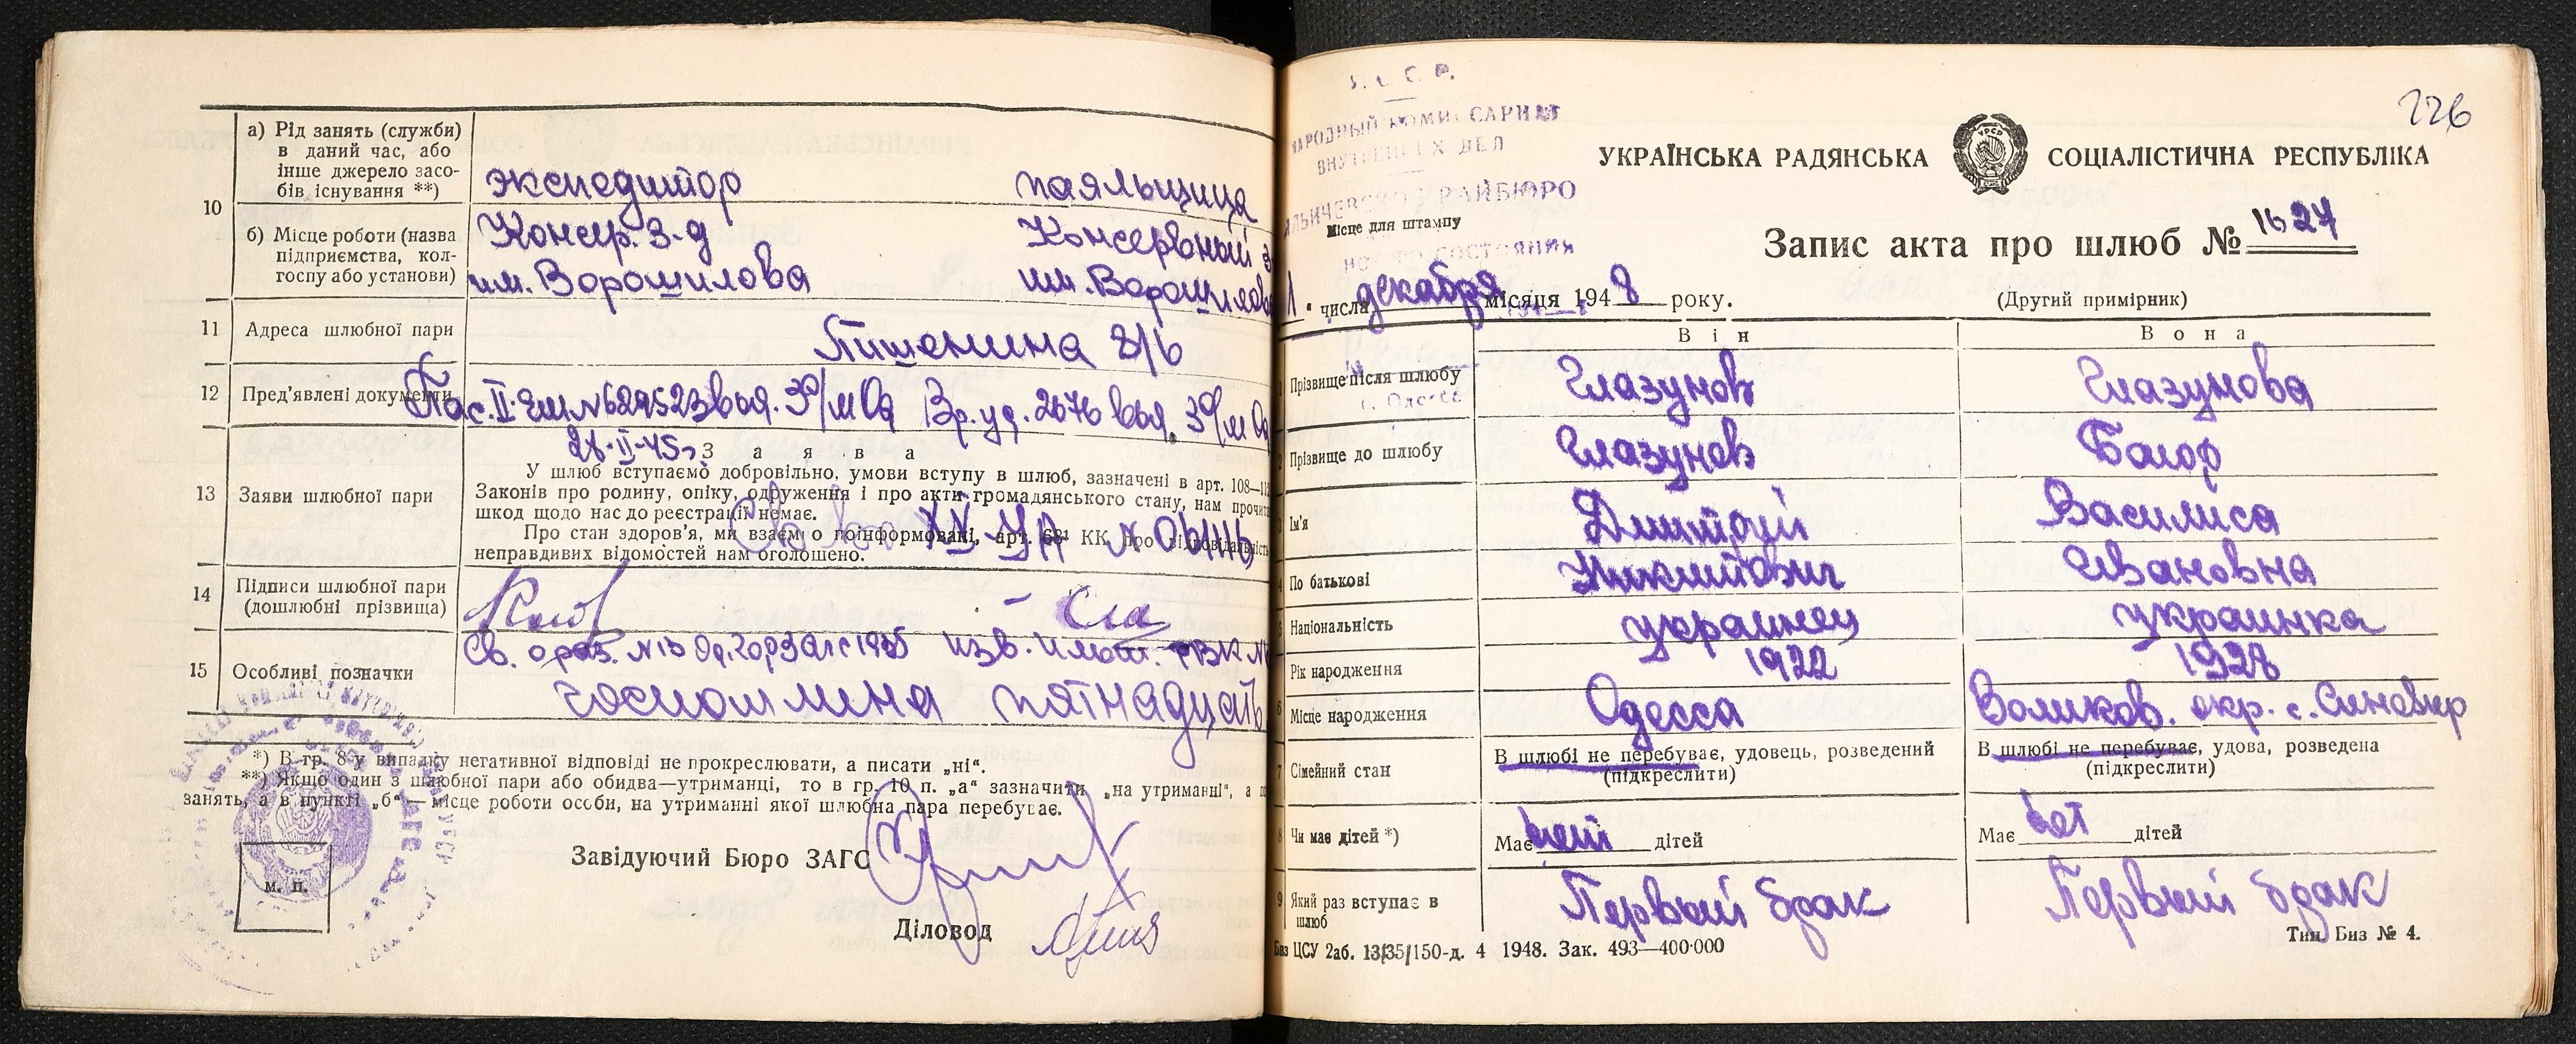 10
а) Рід занять (служби)
в даний час, або
інше джерело засо-
бів існування **)
экспедитор паяльщица
б) Місце роботи (назва
підприємства, кол-
госпу або установи)
Консер. з-д Консервный з
им. Ворошилова им. Ворошилова
11 Адреса шлюбної пари
8/6
12 Пред'явлені документи
Пас. II-ЕШ № 629523 выд. 30/м Од Вр. уд. 2676 выд. 30/м Од
28-II-45г
13 Заяви шлюбної пари
Заява
У шлюб вступаємо добровільно, умови вступу в шлюб, зазначені в арт. 108—11
Законів про родину, опіку, одруження і про акти громадянського стану, нам прочит
шкод щодо нас до реєстрації немає.
Про стан здоров'я, ми взаємно поінформовані, арт. КК про відповідальність
неправдивих відомостей нам оголошено.
14 Підписи шлюбної пари
(дошлюбні прізвища)
15 Особливі позначки
Св. о раз.
госпошлина пятнадцать
*) В гр. 8 у випадку негативної відповіді не прокреслювати, а писати „ні“.
**) Якщо один з шлюбної пари або обидва—утриманці, то в гр. 10 п. „а“ зазначити „на утриманні“, а
занять, а в пункті „б“ — місце роботи особи, на утриманні якої шлюбна пара перебуває.
Завідуючий Бюро ЗАГС
м. п.
Діловод
226
НАРОДНЫЙ КОМИССАРИАТ
ВНУТРЕННИХ ДЕЛ
РАЙБЮРО
Місце для штампу
СОСТОЯНИЯ
г. Одесса
УКРАЇНСЬКА РАДЯНСЬКА СОЦІАЛІСТИЧНА РЕСПУБЛІКА
УРСР
Запис акта про шлюб № 1627
1 числа декабря місяця 1948 року.
(Другий примірник)
Він Вона
1 Прізвище після шлюбу Глазунов Глазунова
2 Прізвище до шлюбу Глазунов Багор
3 Ім'я Дмитрий Василиса
4 По батькові Никитович Ивановна
5 Національність украинец украинка
Рік народження 1922 1928
6 Місце народження Одесса окр. с. Синевир
7 Сімейний стан
В шлюбі не перебуває, удовець, розведений
(підкреслити)
В шлюбі не перебуває, удова, розведена
(підкреслити)
8 Чи має дітей *) Має нет дітей Має нет дітей
9 Який раз вступає в
шлюб
Первый брак Первый брак
Биз ЦСУ 2аб. 13/35/150-д. 4 1948. Зак. 493—400·000
Тип. Биз № 4.